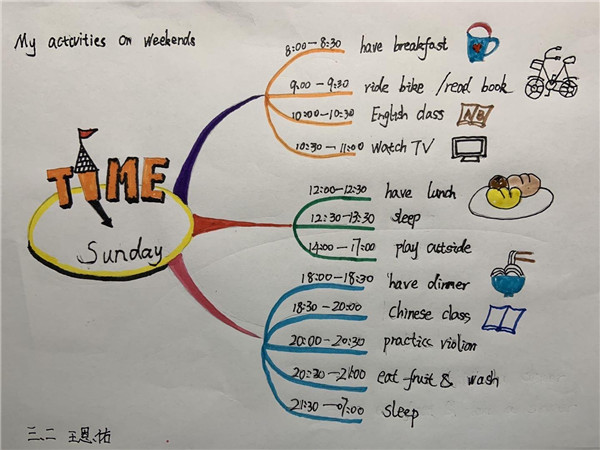 My activities on weekends
8:00-8:30 have breakfast
9:00-9:30 ride bike /read book
10:00-10:30 English class
AB
10:30-11:00 watch TV
TIME
Sunday
12:00-12:30 have lunch
12:30-13:30 sleep
14:00-17:00 play outside
18:00-18:30 have dinner
18:30-20:00 Chinese class
20:00-20:30 practice violian
20:30-21:00 eat fruit & wash
21:30-07:00 sleep
三、二 王恩祐